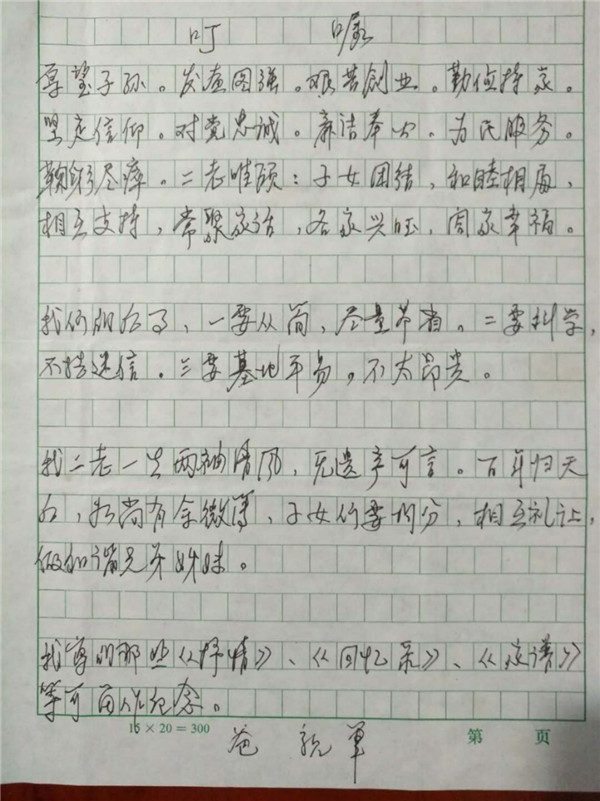 叮嘱
厚望子孙。发奋图强。艰苦创业。勤俭持家。
坚定信仰。对党忠诚。廉洁奉公。为民服务。
鞠躬尽瘁。二老唯愿：子女团结，和睦相处，
相互支持，常聚家话，各家兴旺，阖家幸福。
我们走了、一要从简，尽量节省。二要科学，
不搞迷信。三要墓地平易，不太昂贵。
我二老一生两袖清风，无遗产可言。百年归天
后，如尚有余微薄，子女们要均分，相互礼让，
做和谐兄弟姊妹。
我写的那些《抒情》、《回忆录》、《家谱》
等可留作纪念。
15×20=300
第 页
爸 祝草